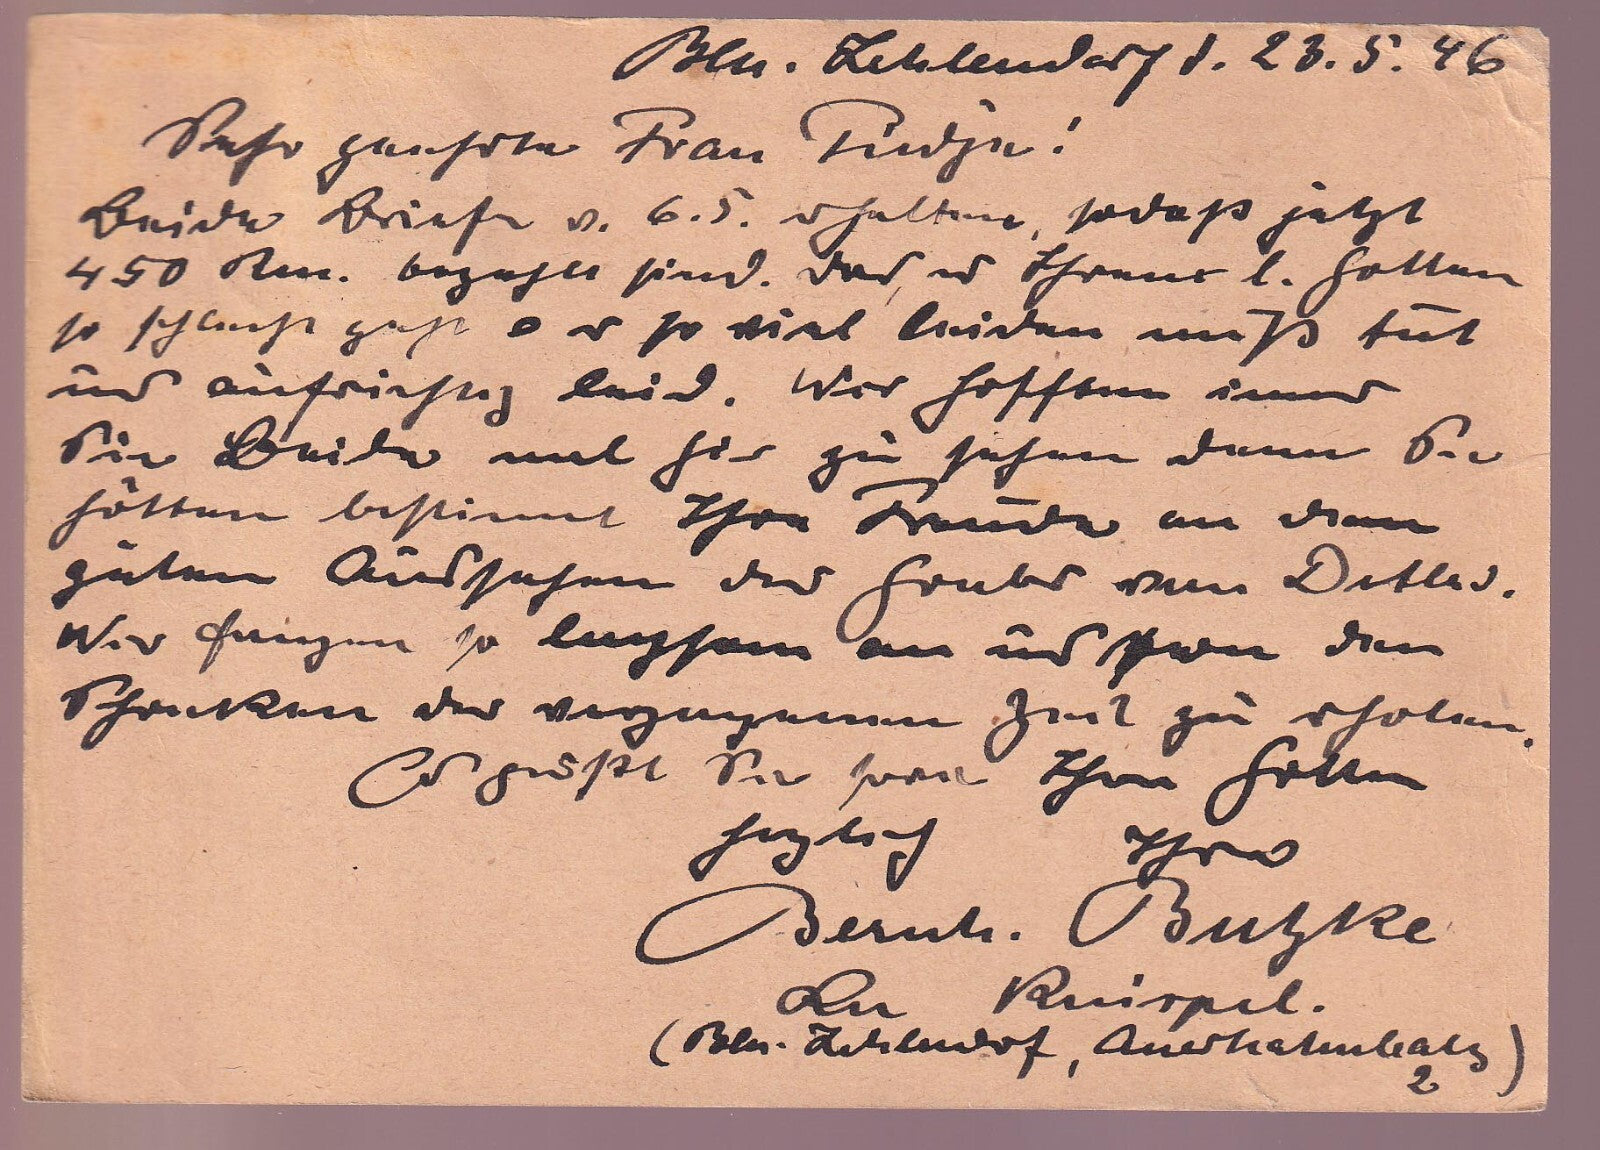 Bln. Zehlendorf d. 23.5.46
Sehr geehrte Frau
Beide Briefe v. 6.5. erhalten, sodaß jetzt
450 Rm. bezahlt sind. Das, es Ihrem l. Gatten
so schlecht geht er so viel leiden muß tut
uns aufrichtig leid. Wir hofften immer
Sie Beide mal hier zu sehen denn Sie
hätten bestimmt Ihre Freude an dem
guten Aussehen des Grabes von Detlev.
Wir fangen so langsam an uns von den
Schrecken der vergangenen Zeit zu erholen.
Es grüßt Sie sowie Ihren Gatten
herzlich Ihre
Bernh. Butzke
Knispel.
(Bln. Zehlendorf, Auerhahnbalz
2)